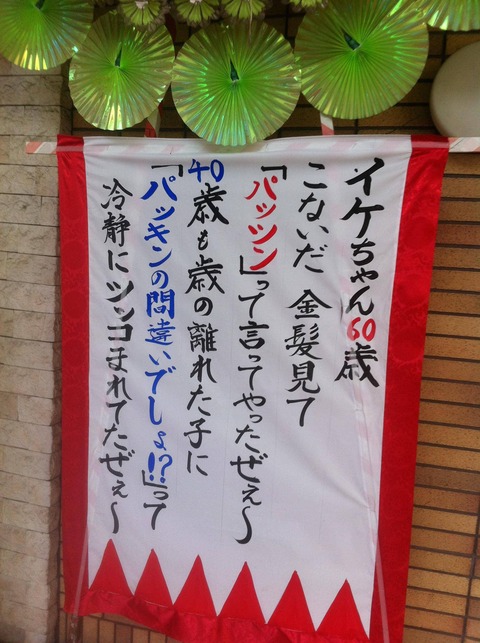 イケちゃん60歳
こないだ 金髪見て
「パッツン」って言ってやったぜぇ〜
40歳も歳の離れた子に
「パッキンの間違いでしょ!?」って
冷静にツッコまれてたぜぇ〜